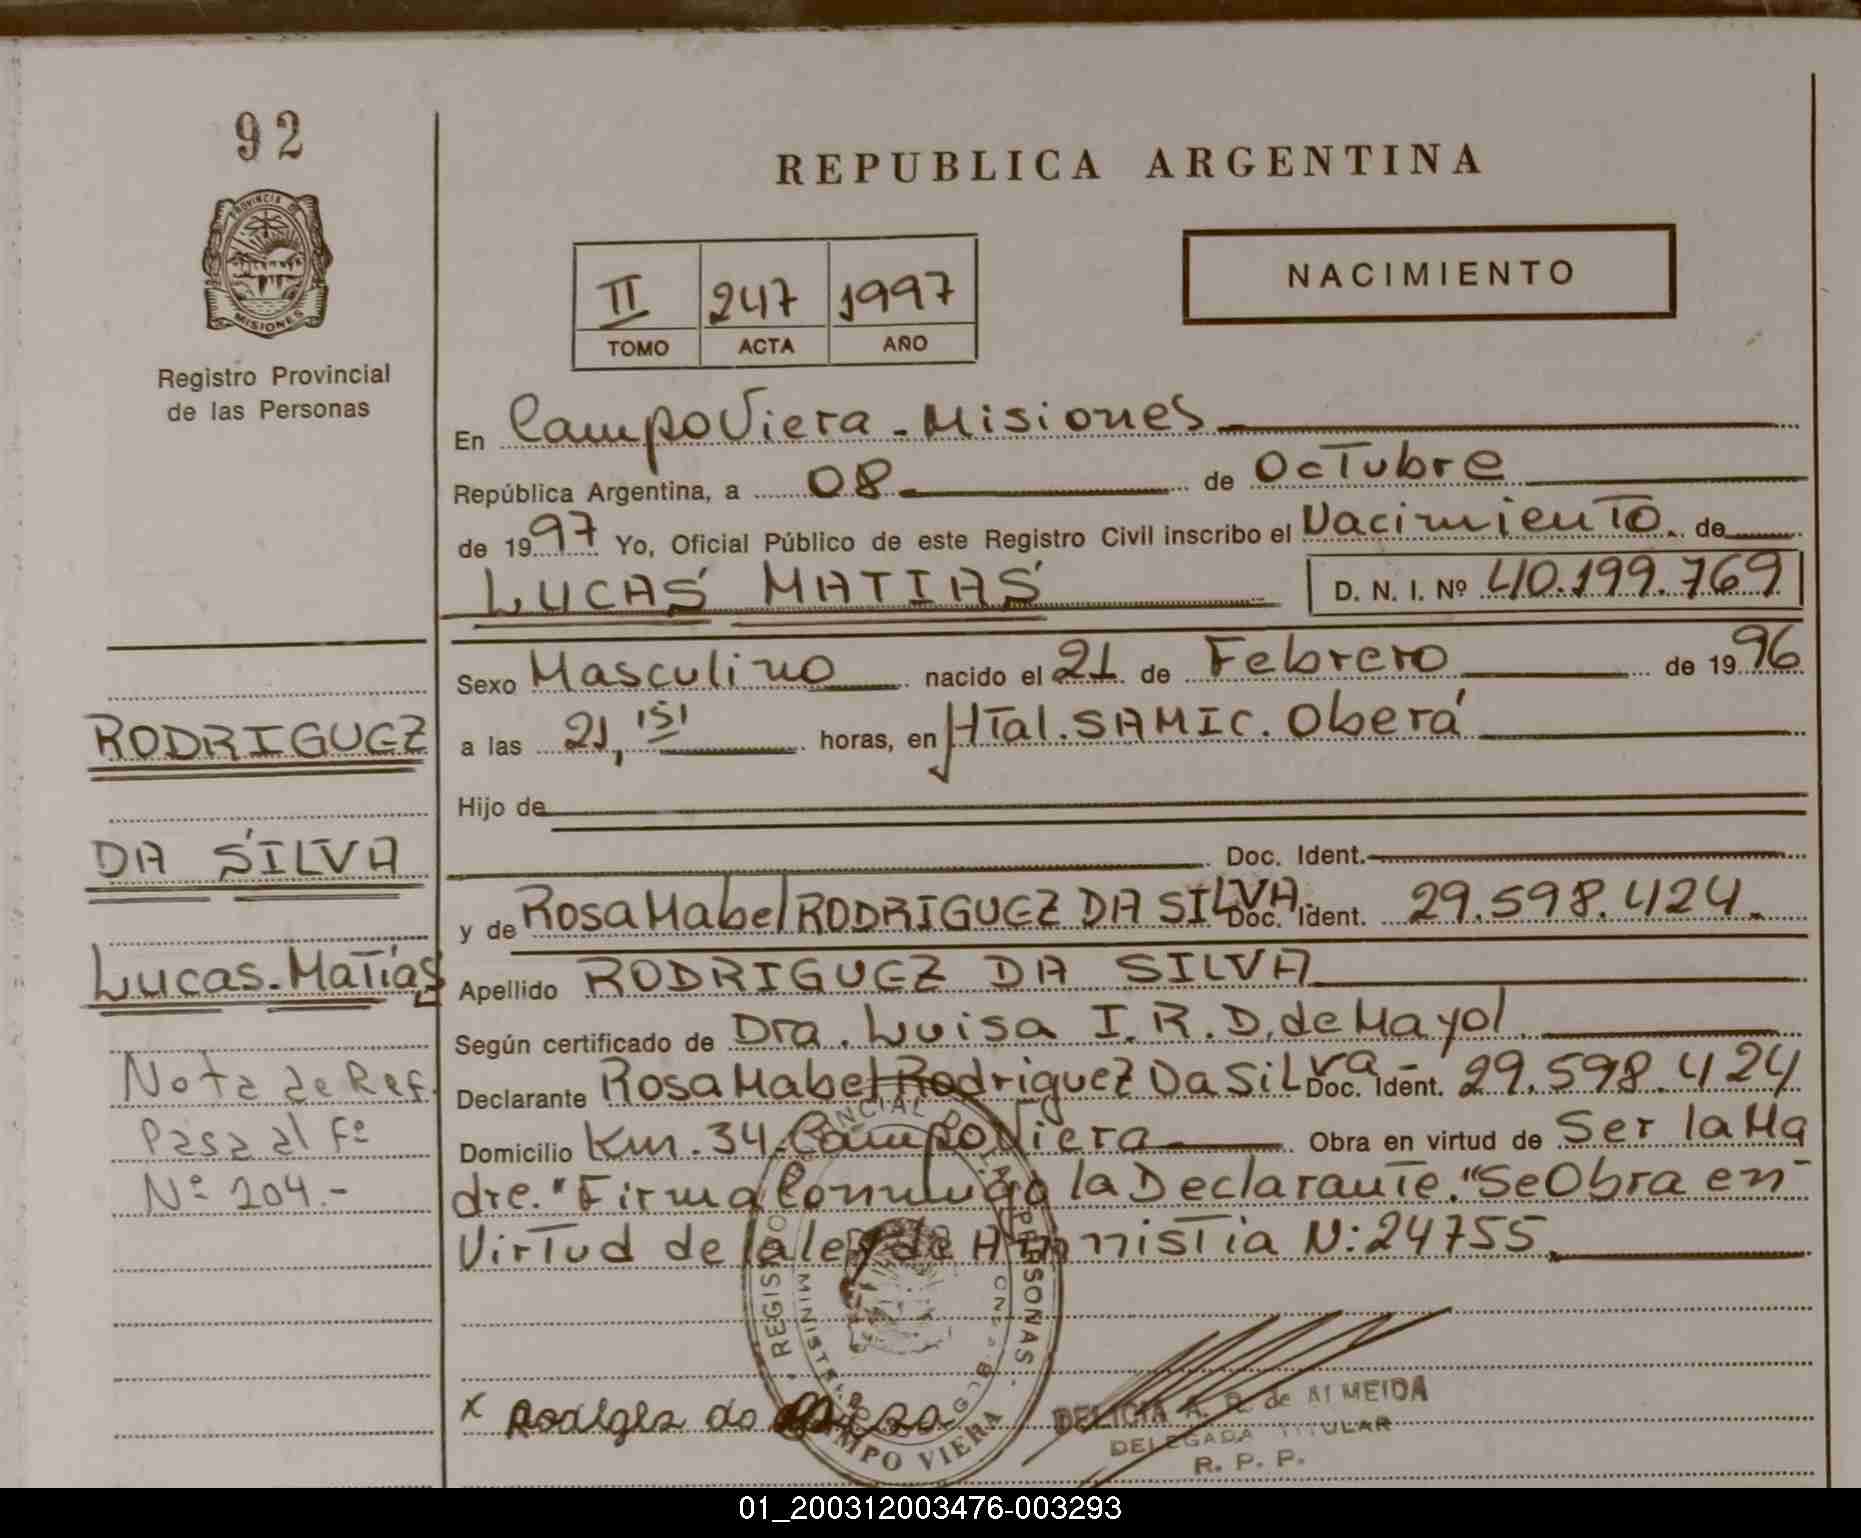 92
PROVINCIA DE
MISIONES
Registro Provincial
de las Personas
RODRIGUEZ
DA SILVA
Lucas-Matías
Nota de Ref.
Pasa al Fº
Nº 204.-
REPUBLICA ARGENTINA
II 247 1997
TOMO ACTA AÑO
NACIMIENTO
En Campo Viera - Misiones
República Argentina, a 08 de Octubre
de 1997 Yo, Oficial Público de este Registro Civil inscribo el Nacimiento. de
LUCAS MATIAS D. N. I. Nº 40.199.769
Sexo Masculino nacido el 21 de Febrero de 1996
a las 21,15 horas, en HTal. SAMIC. Oberá
Hijo de
Doc. Ident.
y de Rosa Mabel RODRIGUEZ DA SILVA. Doc. Ident. 29.598.424.
Apellido RODRIGUEZ DA SILVA
Según certificado de Dra. Luisa I. R. D. de Mayol
Declarante Rosa Mabel Rodriguez Da Silva - Doc. Ident. 29.598.424
Domicilio Km. 34. Campo Viera Obra en virtud de Ser la Ma
dre. "Firma Conmigo la Declarante. "Se Obra en
Virtud de la ley de Amnistia N: 24755.
REGISTRO PROVINCIAL DE LAS PERSONAS
CAMPO VIERA
x
DELICIA A. R. de ALMEIDA
DELEGADA TITULAR
R. P. P.
01_200312003476-003293